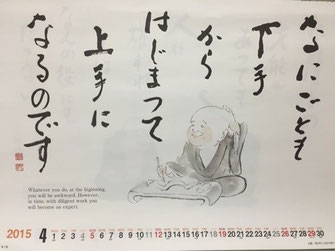 なにごとも
下手
から
はじまつて
上手に
なるのです
Whatever you do, at the biginning
you will be awkward. However,
in time, with diligent work you
will become an expert.
2015 4 1 2 3 4 5 6 7 8 9 10 11 12 13 14 15 16 17 18 19 20 21 22 23 24 25 26 27 28 29 30